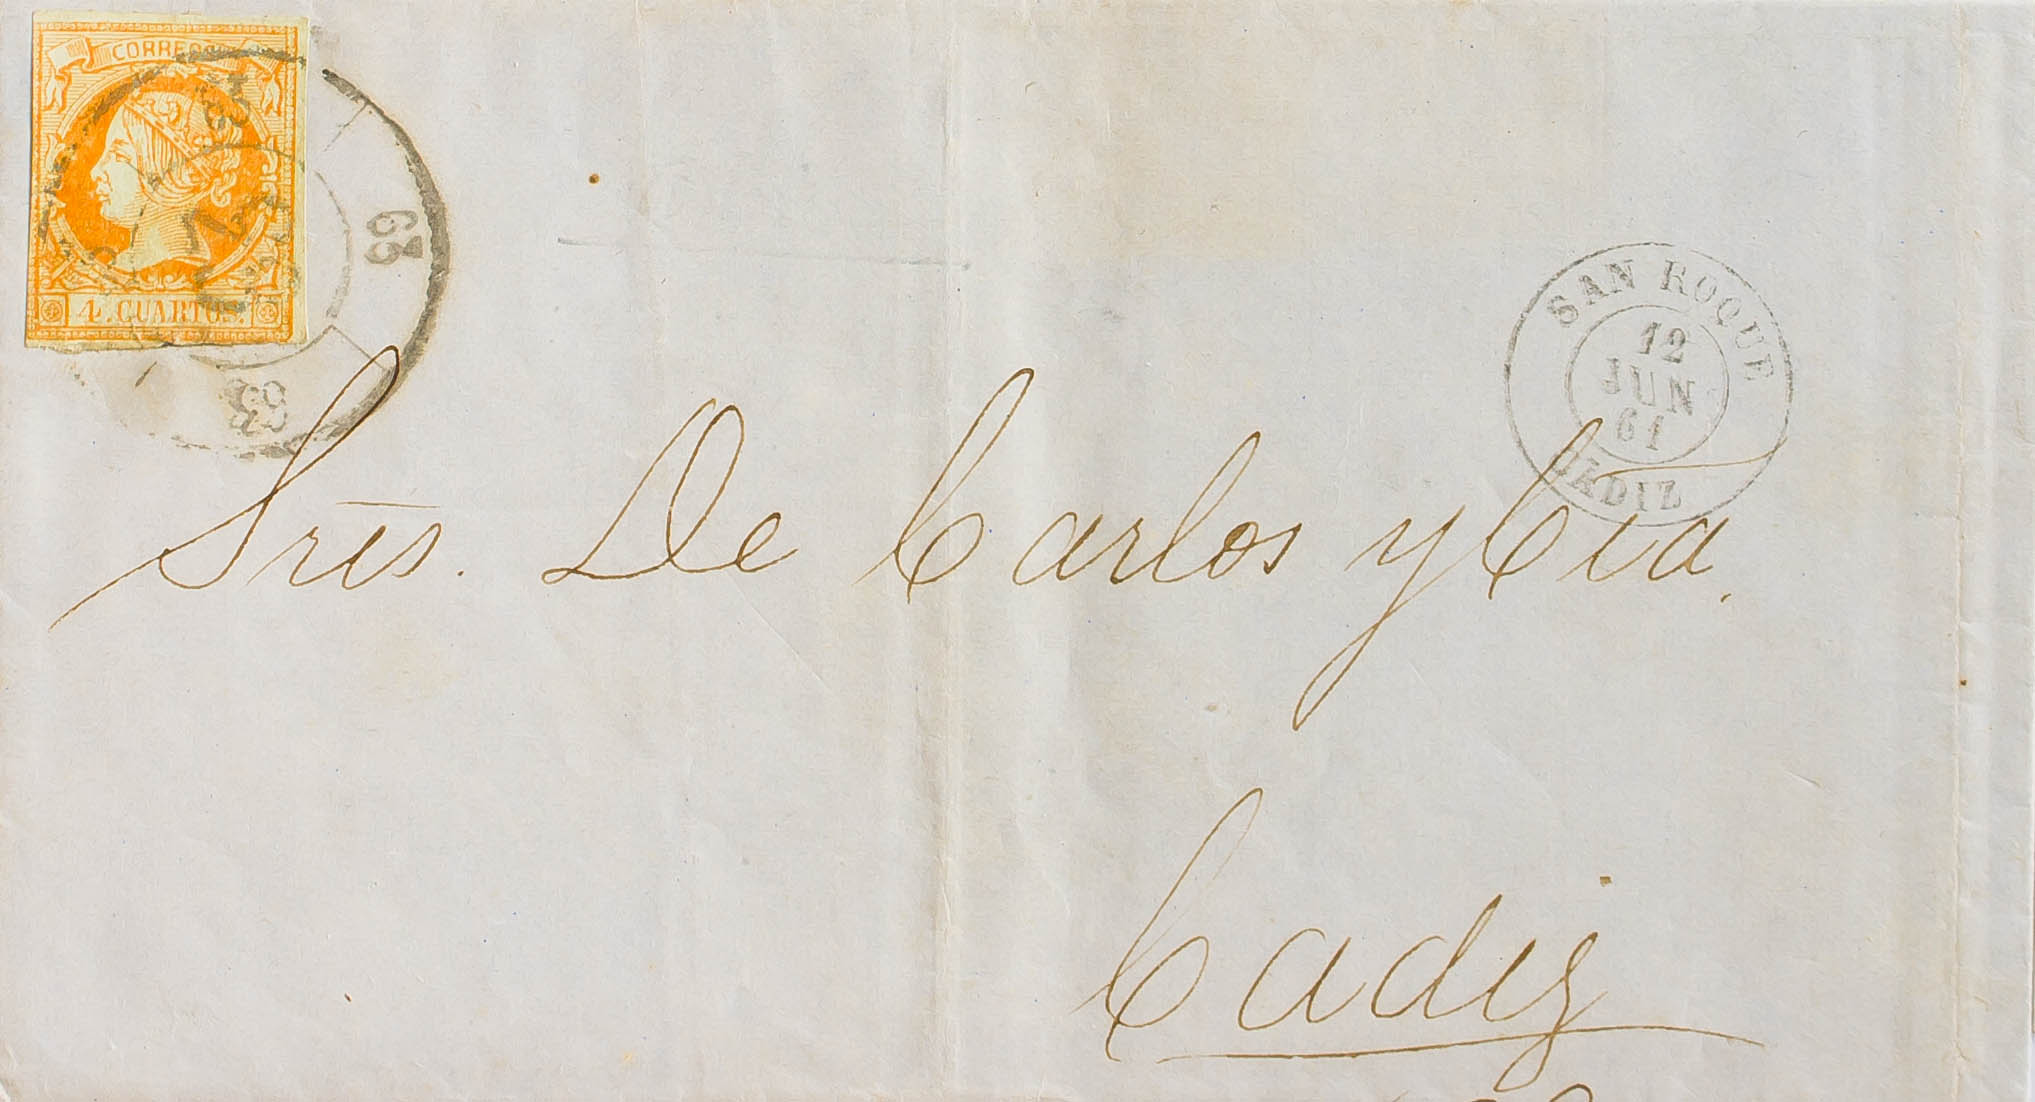 CORREOS
4. CUARTOS.
63
63
SAN ROQUE
12
JUN
61
CADIZ
Sres. De Carlos y Cia.
Cadiz